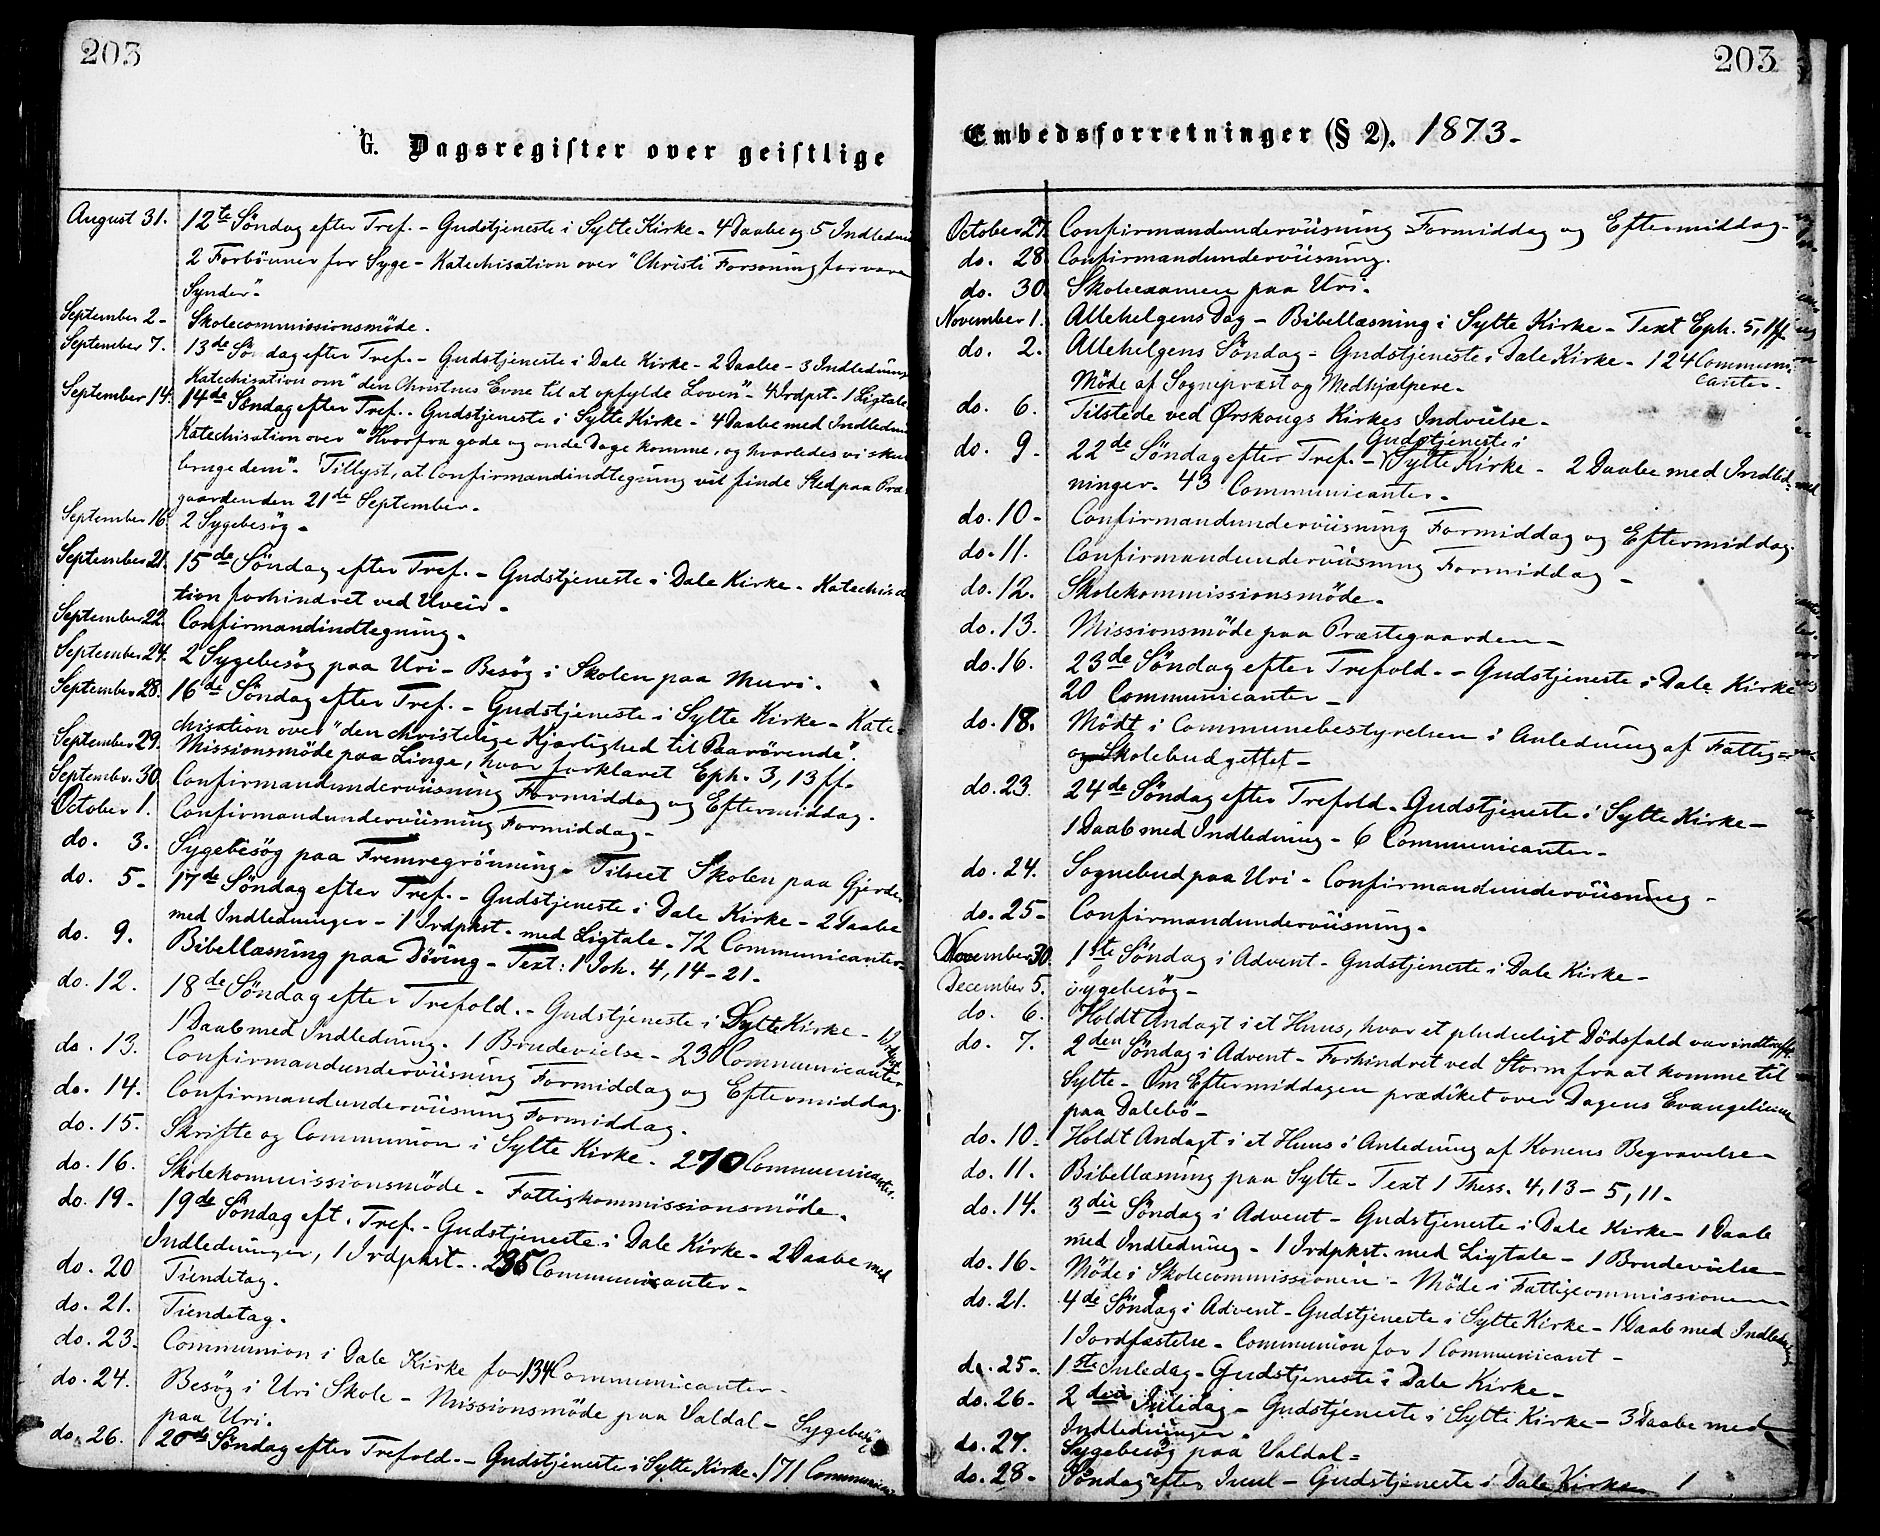 203
G. Dagsregister over geistlige
August 31. 12te Söndag efter Tref. - Gudstjeneste i Sylte Kirke - 4 Daabe og 5 Indledn
2 Forbönner for Syge - Katechisation over "Christi Forsoning for vore
Synder".
September 2 - Skolecommissionsmöde.
September 7. 13de Söndag efter Tref. - Gudstjeneste i Dale Kirke - 2 Daabe - 3 Indledning
Katechisation om "den Christnes Evne til at opfylde Loven" - 4 Irdpst. 1 Ligtale
September 14. 14de Söndag efter Tref. - Gudstjeneste i Sylte Kirke - 4 Daabe med Indledni
Katechisation over "Hvorfra gode og onde Dage komme, og hvorledes vi skul
bruge dem". Tillyst, at Confirmandindtegning vil finde Sted paa Præ-
gaarden den 21de September.
September 16. 2 Sygebesög -
September 21. 15de Söndag efter Tref. - Gudstjeneste i Dale Kirke - Katechisa
tion forhindret ved Uveir -
September 22. Confirmandindtegning.
September 24. 2 Sygebesög paa Uri - Besög i Skolen paa Muri.
September 28. 16de Söndag efter Tref. - Gudstjeneste i Sylte Kirke - Kate-
chisation over "den christelige Kjærlighed til Paarörende".
September 29. Missionsmöde paa Linge, hvor forklaret Eph. 3, 13 ff.
September 30. Confirmandunderviisning Formiddag og Eftermiddag.
October 1. Confirmandunderviisning Formiddag -
do. 3. Sygebesög paa Fremregrönning - Tilseet Skolen paa Gjerde
do. 5 - 17de Söndag efter Tref. - Gudstjeneste i Dale Kirke - 2 Daabe
med Indledninger - 1 Irdpkst. med Ligtale - 72 Communicanter
do. 9. Bibellæsning paa Döving - Text: 1 Joh. 4, 14-21 -
do. 12. 18de Söndag efter Trefold. - Gudstjeneste i Sylte Kirke - 1 Irdpkst
1 Daab med Indledning. 1 Brudevielse - 230 Communicanter
do. 13. Confirmandunderviisning Formiddag og Eftermiddag.
do. 14. Confirmandunderviisning Formiddag.
do. 15. Skrifte og Communion i Sylte Kirke - 270 Communicanter.
do. 16. Skolekommissionsmöde - Fattigkommissionsmöde.
do. 19 - 19de Söndag eft. Tref. - Gudstjeneste i Dale Kirke - 2 Daabe med
Indledninger, 1 Irdpkst. - 235 Communicanter -
do. 20 Tiendetag.
do. 21. Tiendetag.
do. 23. Communion i Dale Kirke for 134 Communicanter -
do. 24. Besög i Uri Skole - Missionsmöde paa Valdal - Sygebesög
paa Uri.
do. 26. 20de Söndag efter Trefold. - Gudstjeneste i Sylte Kirke. 171 Communican
203
Embedsforretninger (§ 2). 1873 -
October 27. Confirmandunderviisning Formiddag og Eftermiddag -
do. 28 Confirmandunderviisning.
do. 30. Skoleexamen paa Uri.
November 1. Allehelgens Dag - Bibellæsning i Sylte Kirke - Text Eph. 5, 1ff
do. 2. Allehelgens Söndag - Gudstjeneste i Dale Kirke - 124 Communi-
canter -
Möde af Sognepræst og Medhjælpere -
do. 6. Tilstede ved Ørskougs Kirkes Indvielse -
do. 9 - 22de Söndag efter Tref. - Gudstjeneste i Sylte Kirke - 2 Daabe med Indled-
ninger. 43 Communicanter -
do. 10 - Confirmandunderviisning Formiddag og Eftermiddag.
do. 11. Confirmandunderviisning Formiddag -
do. 12. Skolekommissionsmöde -
do. 13. Missionsmöde paa Præstegaarden -
do. 16. 23de Söndag efter Trefold. - Gudstjeneste i Dale Kirke
20 Communicanter -
do. 18. Mödt i Communebestyrelsen i Anledning af Fattig-
og Skolebudgettet -
do. 23. 24de Söndag efter Trefold. Gudstjeneste i Sylte Kirke -
1 Daab med Indledning - 6 Communicanter -
do. 24. Sognebud paa Uri - Confirmandunderviisning -
do. 25 - Confirmandunderviisning -
November 30. 1ste Söndag i Advent - Gudstjeneste i Dale Kirke -
December 5. Sygebesög -
do. 6. Holdt Andagt i et Huus, hvor et pludseligt Dödsfald var indtruffet.
do. 7. 2den Söndag i Advent - Forhindret ved Storm fra at komme til
Sylte - Om Eftermiddagen prædiket over Dagens Evangelium
paa Dalebö -
do. 10 - Holdt Andagt i et Huus i Anledning af Konens Begravelse -
do. 11. Bibellæsning paa Sylte - Text 1 Thess. 4, 13 - 5, 11 -
do. 14. 3die Söndag i Advent - Gudstjeneste i Dale Kirke - 1 Daab
med Indledning - 1 Irdpkst. med Ligtale - 1 Brudevielse -
do. 16 - Möde i Skolecommissionen - Möde i Fattigcommissionen -
do. 21. 4de Söndag i Advent - Gudstjeneste i Sylte Kirke - 1 Daab med Indledning
1 Jordfæstelse - Communion for 1 Communicant -
do. 25 - 1ste Juledag - Gudstjeneste i Dale Kirke -
do. 26 - 2den Juledag - Gudstjeneste i Sylte Kirke - 3 Daabe med
Indledninger
do. 27. Sygebesög paa Valdal -
do. 28 - Söndag efter Juul - Gudstjeneste i Dale Kirke - 1